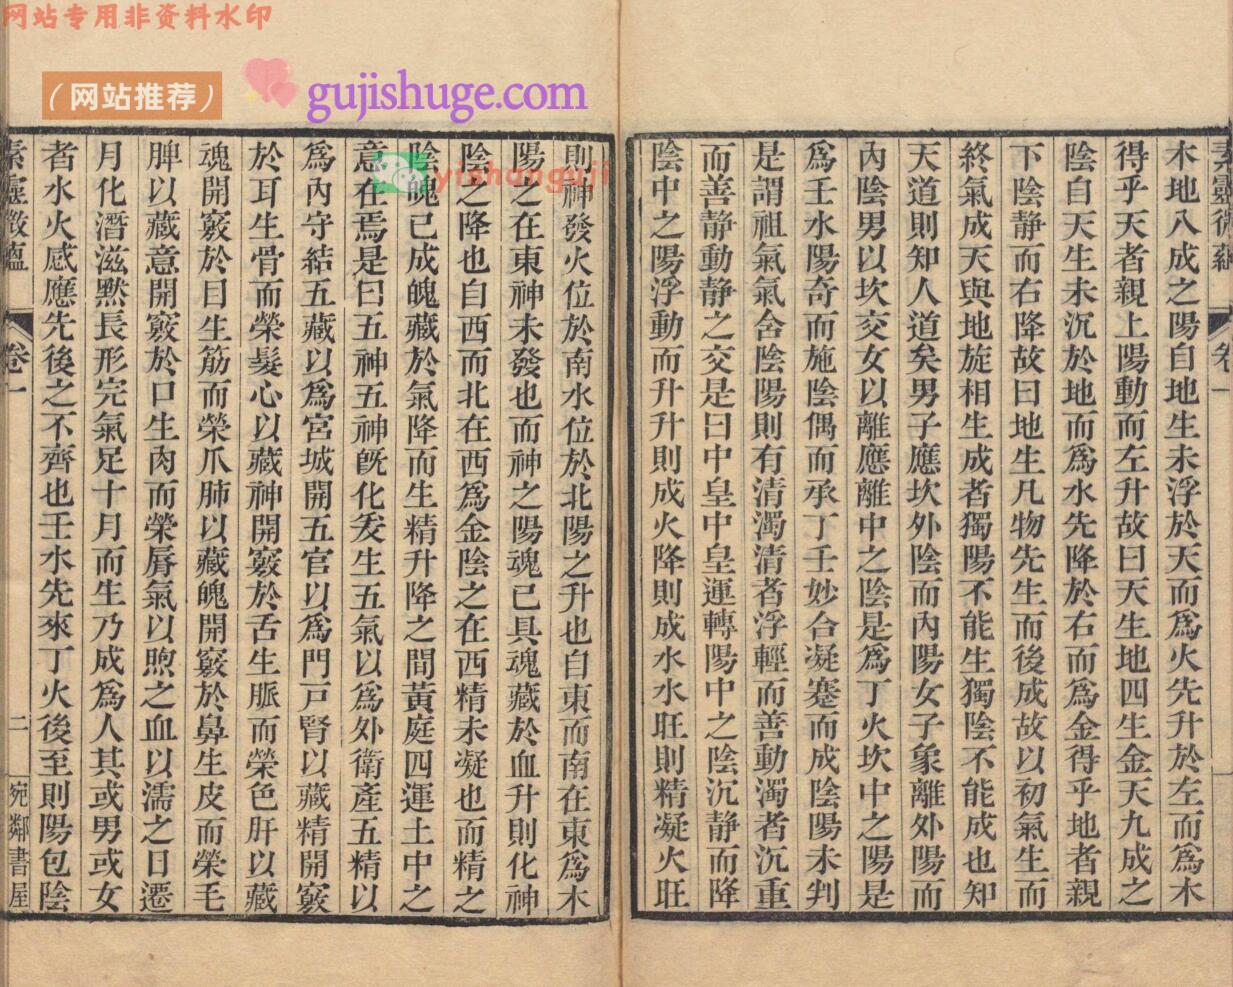 网站专用非资料水印
（网站推荐）
gujishuge.com
yishanguji
素靈微蘊
卷一
木地八成之陽自地生未浮於天而爲火先升於左而爲木
得乎天者親上陽動而左升故曰天生地四生金天九成之
陰自天生未沉於地而爲水先降於右而爲金得乎地者親
下陰静而右降故曰地生凡物先生而後成故以初氣生而
終氣成天與地旋相生成者獨陽不能生獨陰不能成也知
天道則知人道矣男子應坎外陰而內陽女子象離外陽而
內陰男以坎交女以離應離中之陰是爲丁火坎中之陽是
爲壬水陽奇而施陰偶而承丁壬妙合凝蹇而成陰陽未判
是謂祖氣氣含陰陽則有清濁清者浮輕而善動濁者沉重
而善静動静之交是曰中皇中皇運轉陽中之陰沉静而降
陰中之陽浮動而升升則成火降則成水水旺則精凝火旺
則神發火位於南水位於北陽之升也自東而南在東爲木
陽之在東神未發也而神之陽魂已具魂藏於血升則化神
陰之降也自西而北在西爲金陰之在西精未凝也而精之
陰魄已成魄藏於氣降而生精升降之間黃庭四運土中之
意在焉是曰五神五神旣化爰生五氣以爲外衛產五精以
爲內守結五藏以爲宮城開五官以爲門戸腎以藏精開竅
於耳生骨而榮髮心以藏神開竅於舌生脈而榮色肝以藏
魂開竅於目生筋而榮爪肺以藏魄開竅於鼻生皮而榮毛
脾以藏意開竅於口生肉而榮脣氣以煦之血以濡之日遷
月化潛滋黙長形完氣足十月而生乃成爲人其或男或女
者水火感應先後之不齊也壬水先來丁火後至則陽包陰
素靈微蘊
卷一
二
宛鄰書屋